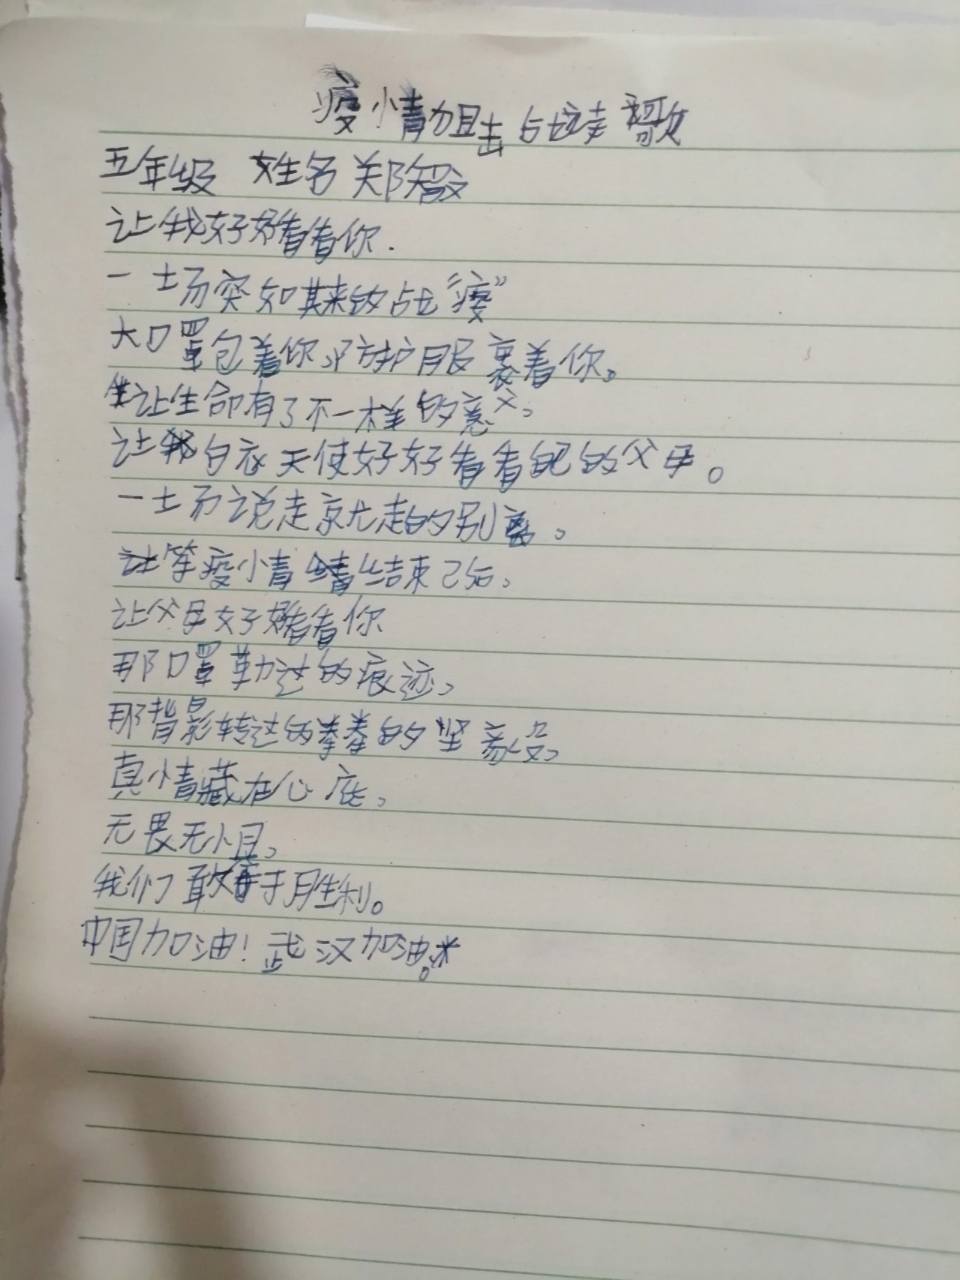 疫情阻击战赞歌
五年级 姓名 郑智
让我好好看看你.
一场突如其来的战“疫”
大口罩包着你,防护服裹着你。
让生命有了不一样的意义,
让白衣天使好好看看自己的父母。
一场说走就走的别离。
等疫情结束己后,
让父母好好看看你
那口罩勒过的痕迹、
那背影转过的拳拳的坚毅、
真情藏在心底、
无畏无惧、
我们敢于胜利。
中国加油!武汉加油。